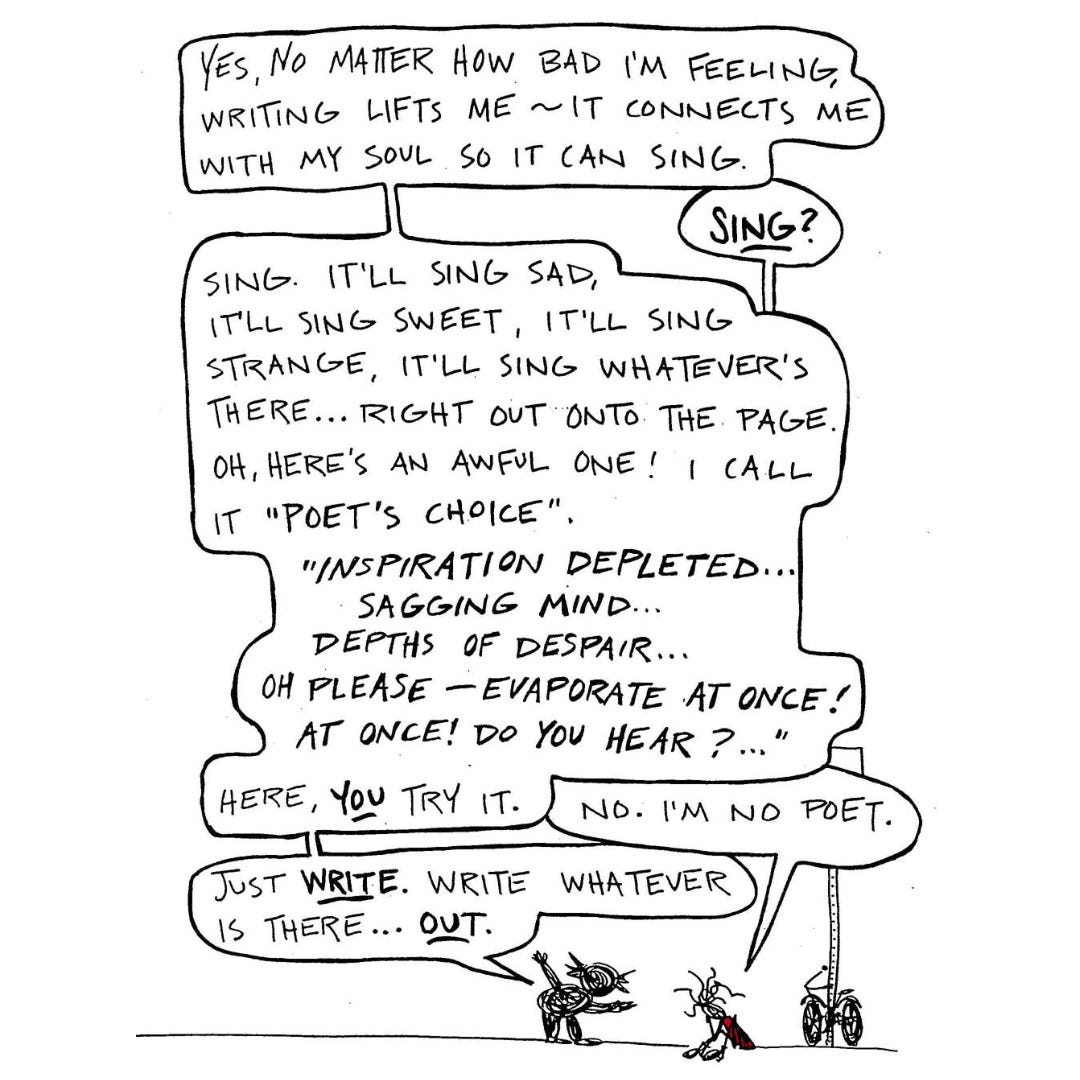 YES, NO MATTER HOW BAD I'M FEELING,
WRITING LIFTS ME ~ IT CONNECTS ME
WITH MY SOUL SO IT CAN SING.
SING?
SING. IT'LL SING SAD,
IT'LL SING SWEET, IT'LL SING
STRANGE, IT'LL SING WHATEVER'S
THERE... RIGHT OUT ONTO THE PAGE.
OH, HERE'S AN AWFUL ONE! I CALL
IT "POET'S CHOICE".
"INSPIRATION DEPLETED...
SAGGING MIND...
DEPTHS OF DESPAIR...
OH PLEASE — EVAPORATE AT ONCE!
AT ONCE! DO YOU HEAR?..."
HERE, YOU TRY IT.
NO. I'M NO POET.
JUST WRITE. WRITE WHATEVER
IS THERE... OUT.